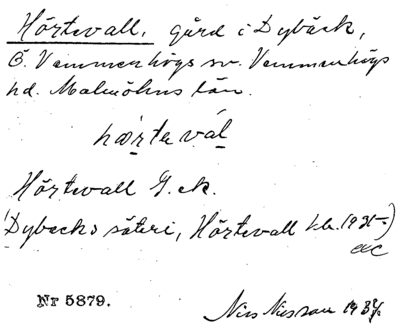 Hörtevall, gård i Dybäck,
Ö. Vemmenhögs sn. Vemmenhögs
hd. Malmöhus län.
hœrteväl
Hörtevall G. ek.
(Dybecks säteri, Hörtevall hls. 1931–)
etc
Nr 5879.
Nils Nilsson 1937.